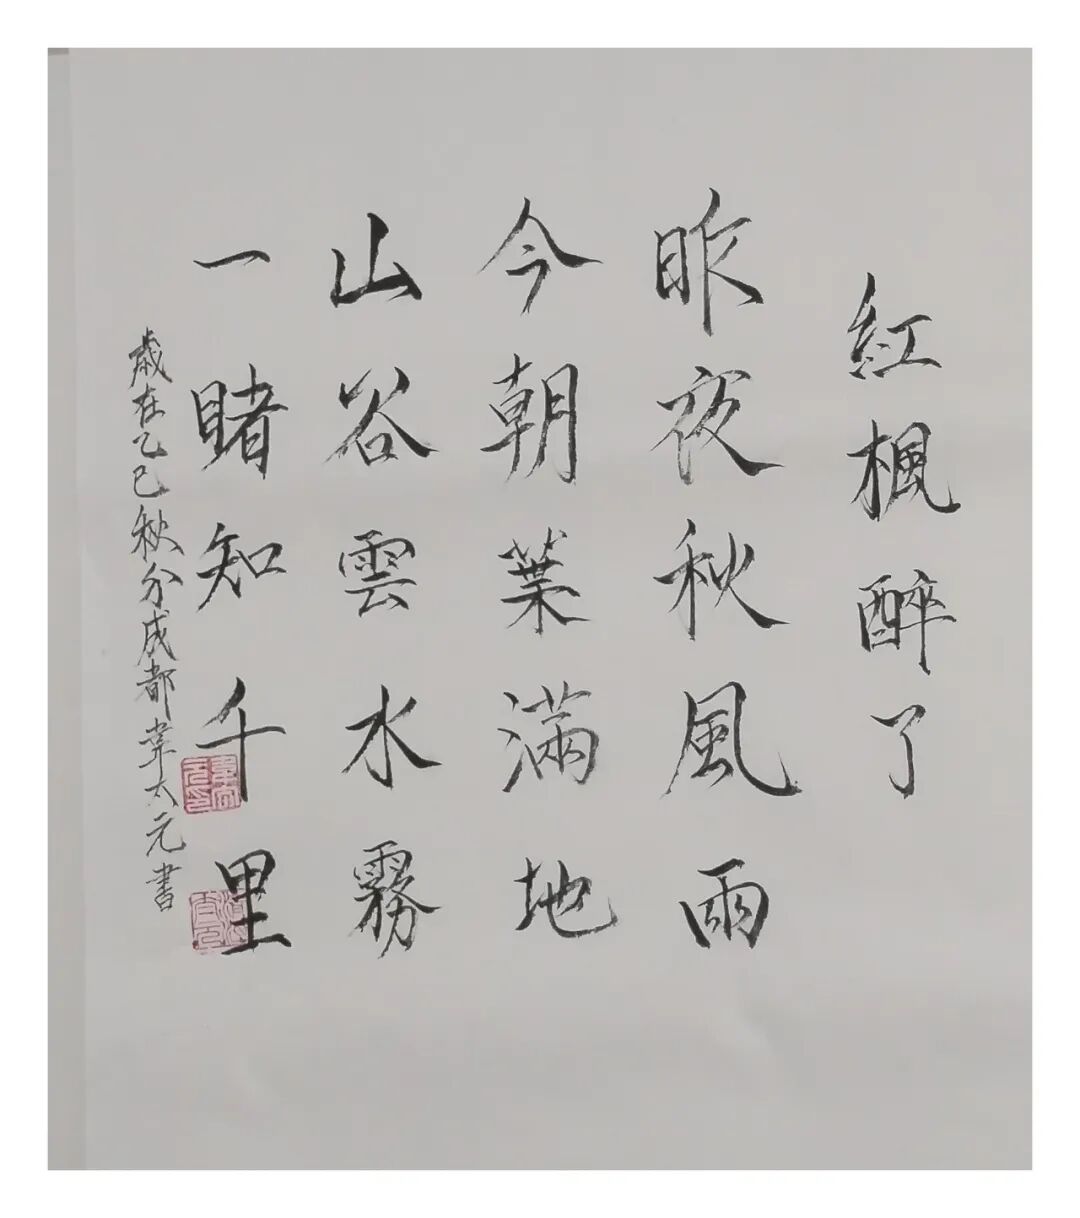 紅楓醉了
昨夜秋風雨
今朝葉滿地
山谷雲水霧
一睹知千里
歲在乙巳秋分成都韋太元書